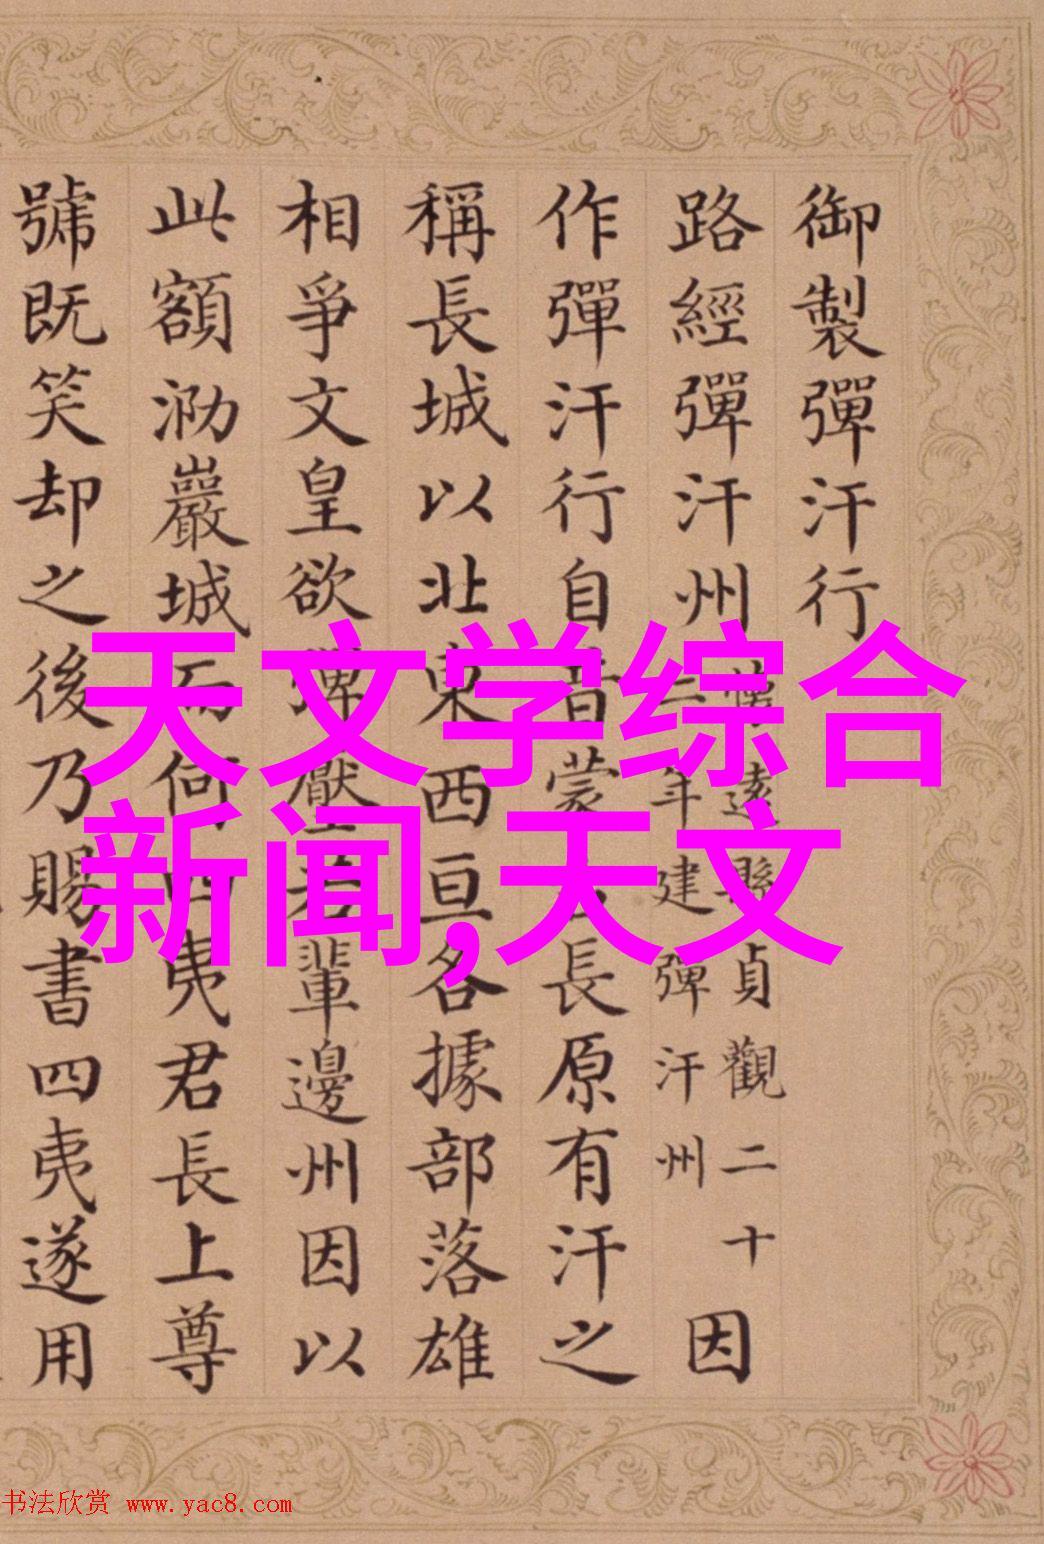 御製彈汗行
路經彈汗州
懷遠縣貞觀二十
二年建彈汗州
因
作彈汗行自昔蒙長原有汗之
稱長城以北東西亘各據部落雄
相爭文皇欲彈壓若輩邊州因以
此額泐巖城而何四夷君長上尊
號既笑却之後乃賜書四夷遂用
天文学综合
新闻,天文
书法欣赏 www.yac8.com